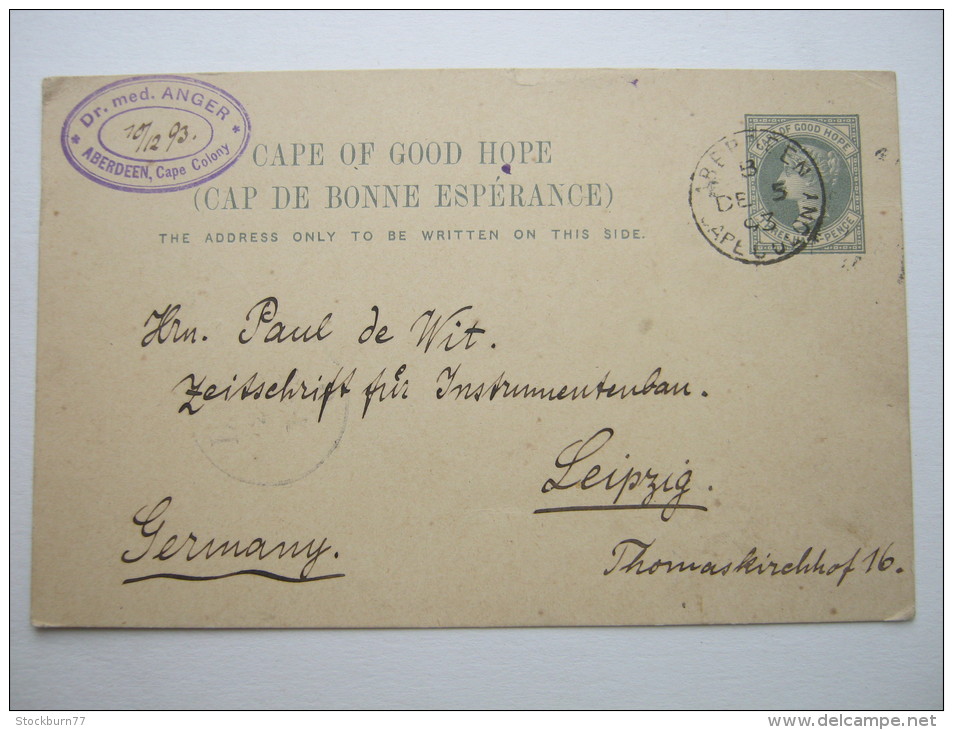 Dr. med. ANGER
10/12 93.
ABERDEEN, Cape Colony
CAPE OF GOOD HOPE
(CAP DE BONNE ESPÉRANCE)
THE ADDRESS ONLY TO BE WRITTEN ON THIS SIDE.
CAPE OF GOOD HOPE
PENCE
ABERDEEN
DE
Hrn. Paul de Wit.
Zeitschrift für Instrumentenbau.
Leipzig.
Germany.
Thomaskirchhof 16.
Stockburn77
www.delcampe.net